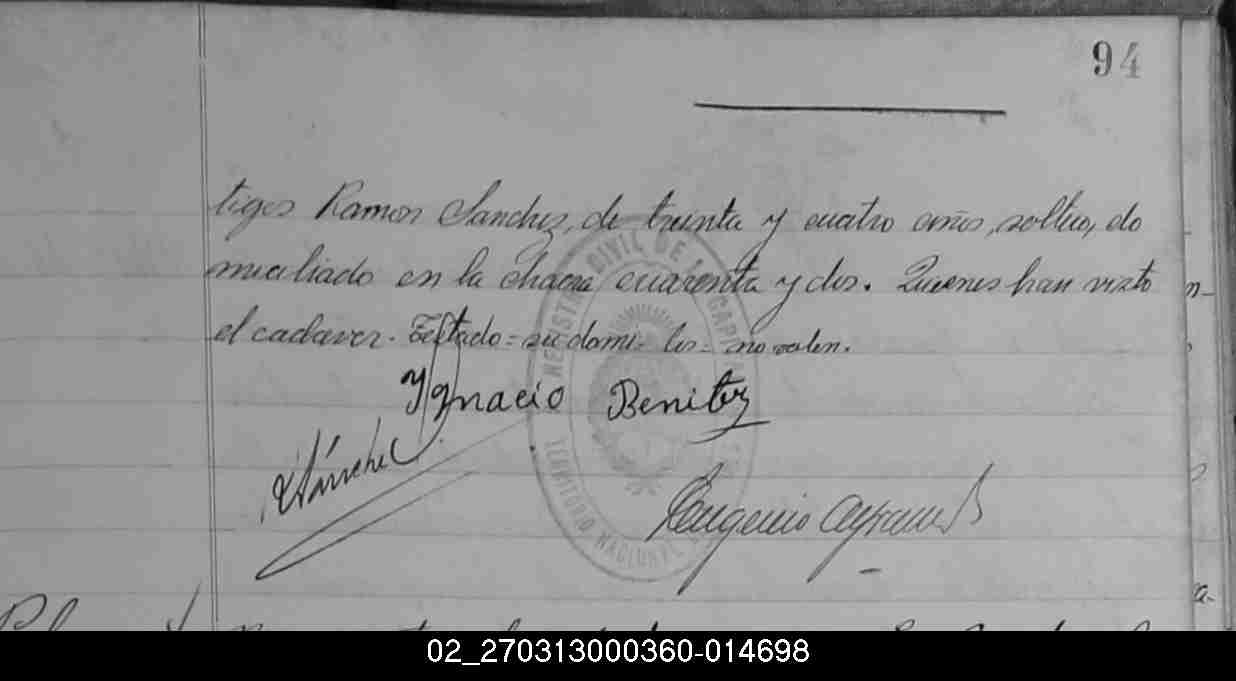 94
tigos Ramon Sanchez, de treinta y cuatro años, soltero, do
miciliado en la chacra cuarenta y dos. Quienes han visto
el cadaver. Testado = su domi = los = no valen.
Ygnacio Benitez
RSánchez
Eugenio
REGISTRO CIVIL DE LA CAPITAL
TERRITORIO NACIONAL
02_270313000360-014698